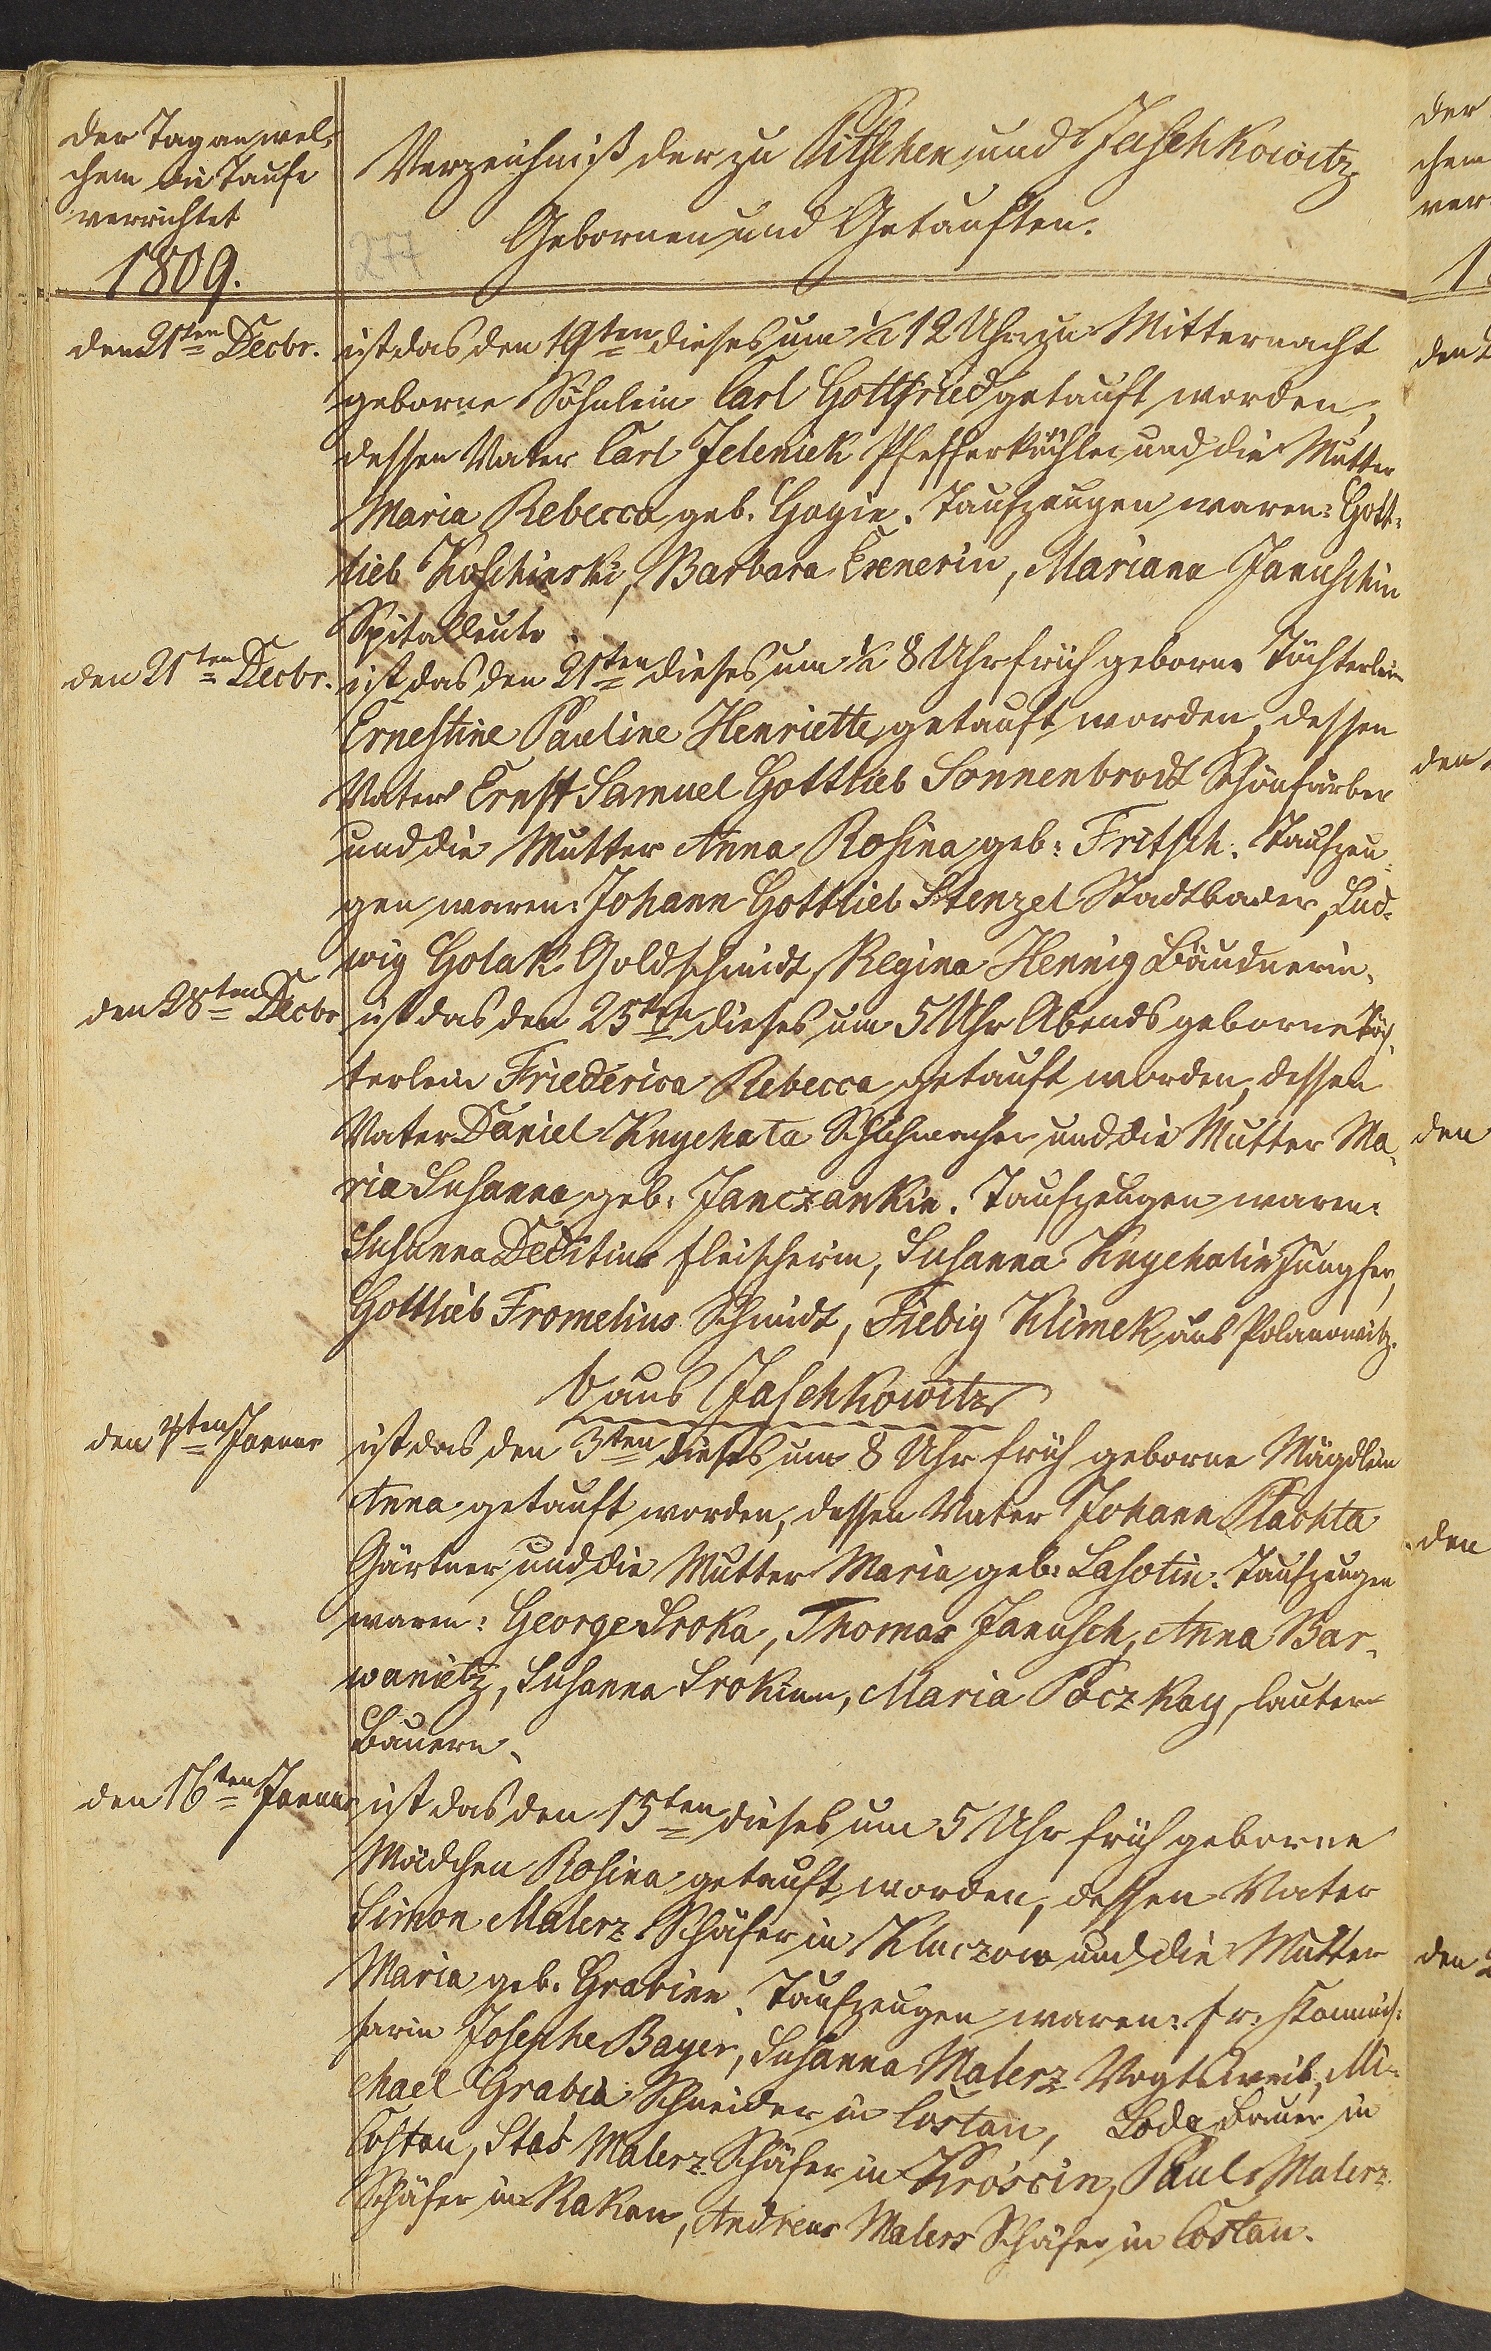 der Tag an wel-
chem die Taufe
verrichtet
1809.
Verzeichniß der zu Pitschen und Jaschkowitz
Gebornen und Getauften.
277
den 21ten Decbr.
ist das den 19ten dieses um ½ 12 Uhr zu Mitternacht
geborne Söhnlein Carl Gottfried getauft worden,
dessen Vater Carl Jeleniek Pfefferküchler und die Mutter
Maria Rebecca geb. Gogin. Taufzeugen waren: Gott-
lieb Koschinski, Barbara Exnerin, Mariana Januschkin
Spitalleute.
den 21ten Decbr.
ist das den 21ten dieses um ½ 8 Uhr früh geborne Töchterlein
Ernestine Pauline Henriette getauft worden, dessen
Vater Ernst Samuel Gottlieb Sonnenbrodt Schönfärber
und die Mutter Anna Rosina geb: Fritsch. Taufzeu-
gen waren: Johann Gottlieb Stenzel Stadtbader, Lud-
wig Golak Goldschmidt, Regina Hennig Bäudnerin.
den 28ten Decbr
ist das den 25ten dieses um 5 Uhr Abends geborne Töch-
terlein Friederica Rebecca getauft worden, dessen
Vater Daniel Knychata Schuhmacher und die Mutter Ma-
ria Susanna geb: Janczankin. Taufzeugen waren:
Susanna Deditius Fleischerin, Susanna Knychatin Jungfer,
Gottlieb Fromelius Schmidt, Fiebig Klimek aus Polanowitz.
b aus Jaschkowitz
den 4ten Januar
ist das den 3ten dieses um 8 Uhr früh geborne Mägdlein
Anna getauft worden, dessen Vater Johann Plachta
Gärtner und die Mutter Maria geb: Lasotin. Taufzeugen
waren: George Sroka, Thomas Janusch, Anna Bar-
wanietz, Susanna Srokinn, Maria Poczkay, lauter
Bauern.
den 16ten Januar
ist das den 15ten dieses um 5 Uhr früh geborne
Mädchen Rosina getauft worden, dessen Vater
Simon Malerz Schäfer in Kluczow und die Mutter
Maria geb. Grabinn. Taufzeugen waren: Fr: Kommis-
sarin Josephe Bayer, Susanna Malerz Vogtsweib, Mi-
chael Grabia Schneider in Costau, Loda Bauer in
Costau, Stas Malerz Schäfer in Kroscin, Paul Malerz
Schäfer in Rakau, Andreas Malers Schäfer in Costau.